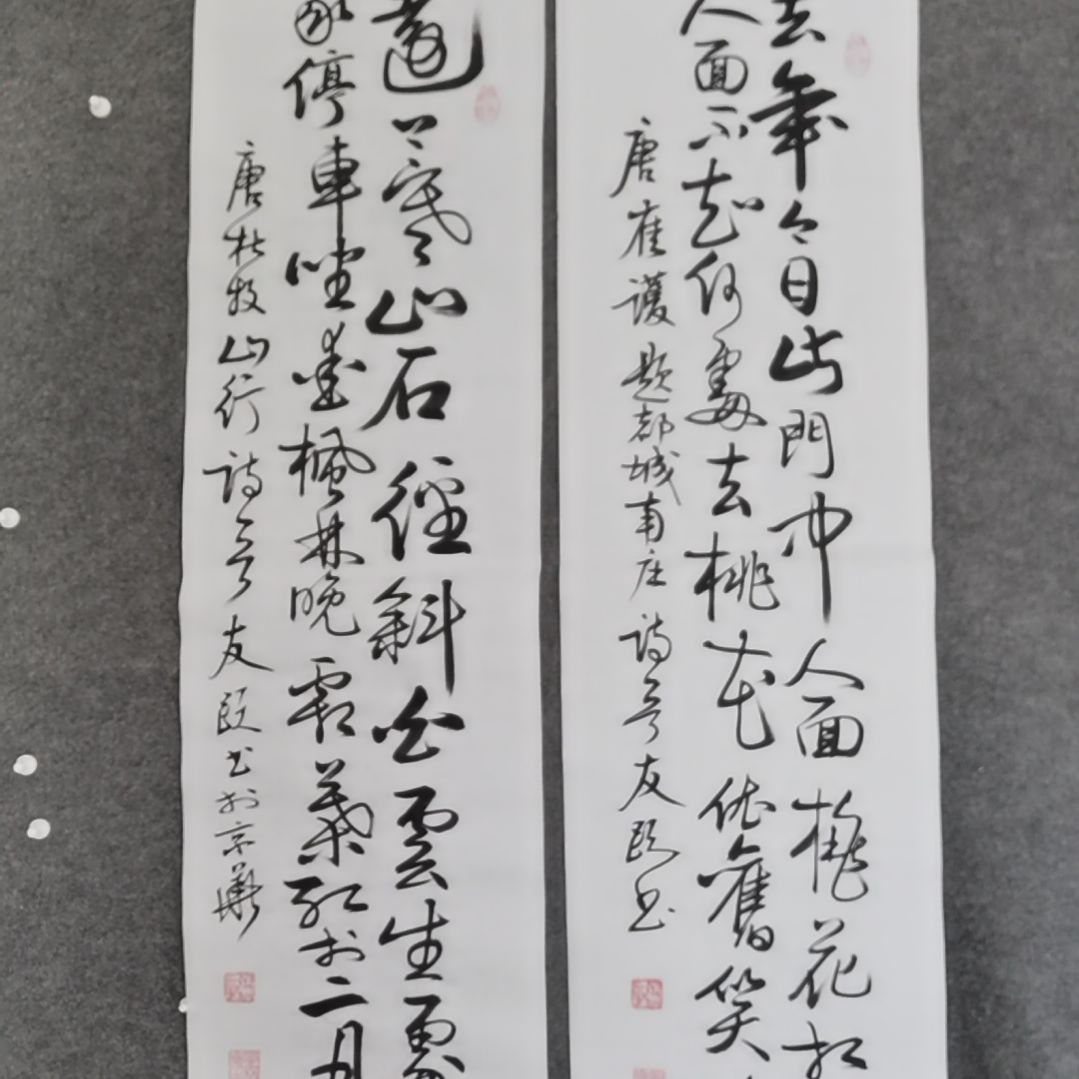 去年今日此門中人面桃花相
人面不知何處去桃花依舊笑
唐崔護題都城南庄詩一首友书
遠上寒山石徑斜白雲生處
家停車坐愛楓林晚霜葉紅於二月
唐杜牧山行詩一首友书於京華